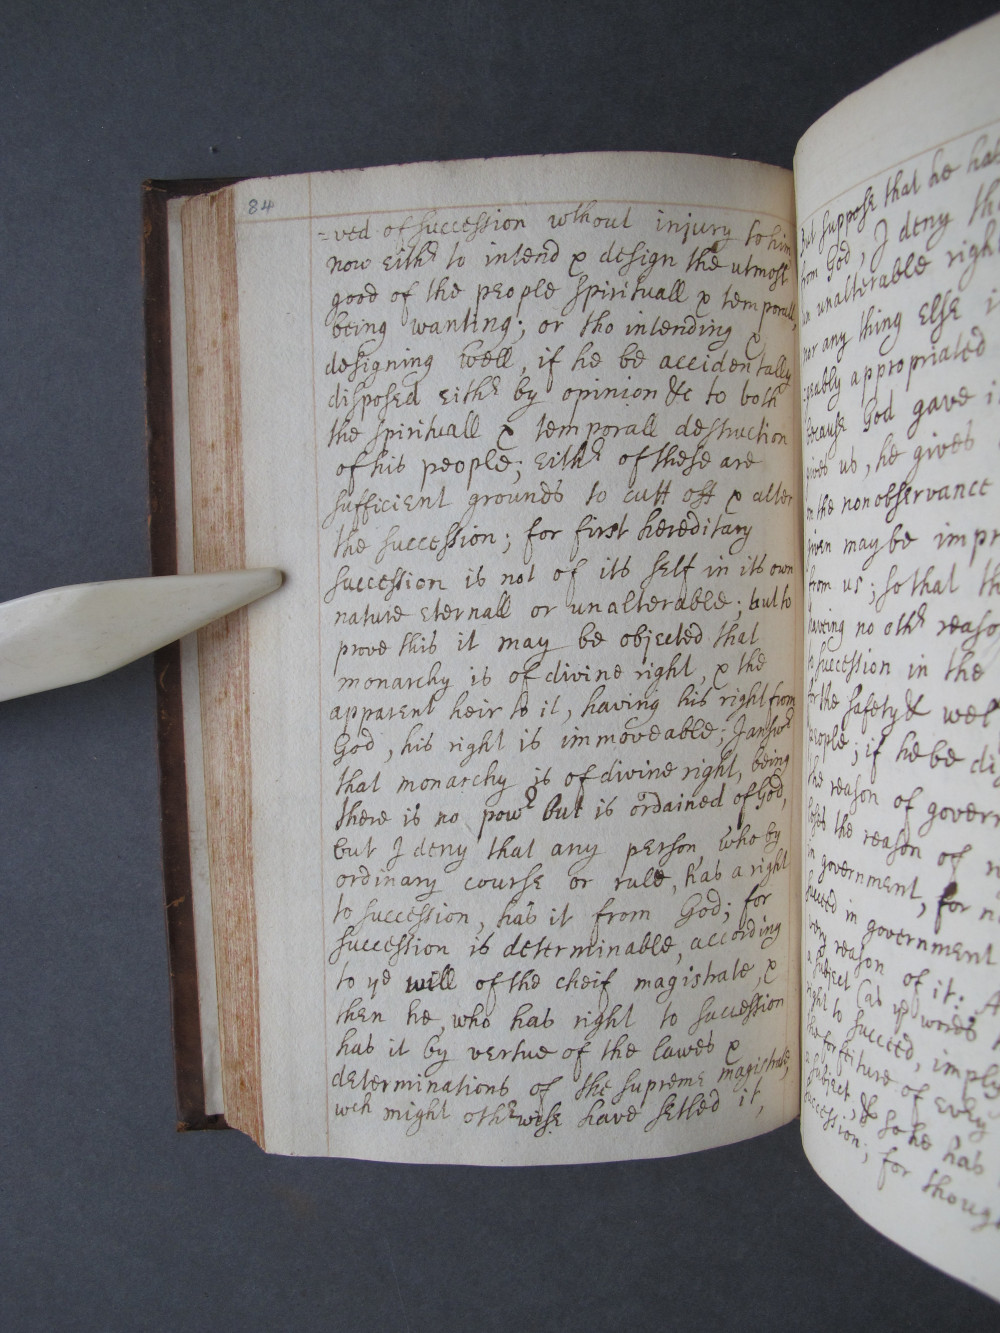 84
-ved of succession wthout injury to him
now eithr to intend & design the utmost
good of the people spirituall & temporall,
being wanting; or tho intending &
designing well, if he be accidentally
disposed eithr by opinion &c to both
the spirituall & temporall destruction
of his people; eithr of these are
sufficient grounds to cutt off & alter
the succession; for first hereditary
succession is not of its self in its own
nature eternall or unalterable; but to
prove this it may be objected that
monarchy is of divine right, & the
apparent heir to it, having his right from
God, his right is immoveable; I answr
that monarchy is of divine right, being
there is no powr but is ordained of God,
but I deny that any person, who by
ordinary course or rule, has a right
to succession, has it from God; for
succession is determinable, according
to ye will of the cheif magistrate, &
then he, who has right to succession
has it by vertue of the lawes &
determinations of the supreme magistrate,
wch might othrwise have setled it,
But suppose that he hat
from God, I deny tha
an unalterable righ
nor any thing else i
appropriated
because God gave i
gives us, he gives
the nonobservance
given may be impr
from us; so that th
having no othr reaso
to succession in the
for the safety & wel
people; if he be di
the reason of govern
the reason of
in government, for n
succeed in government
very reason of it: A
a subject (as ye words
right to succeed, imply
the forfeiture of every
a subject, & so he has
succession; for thoug